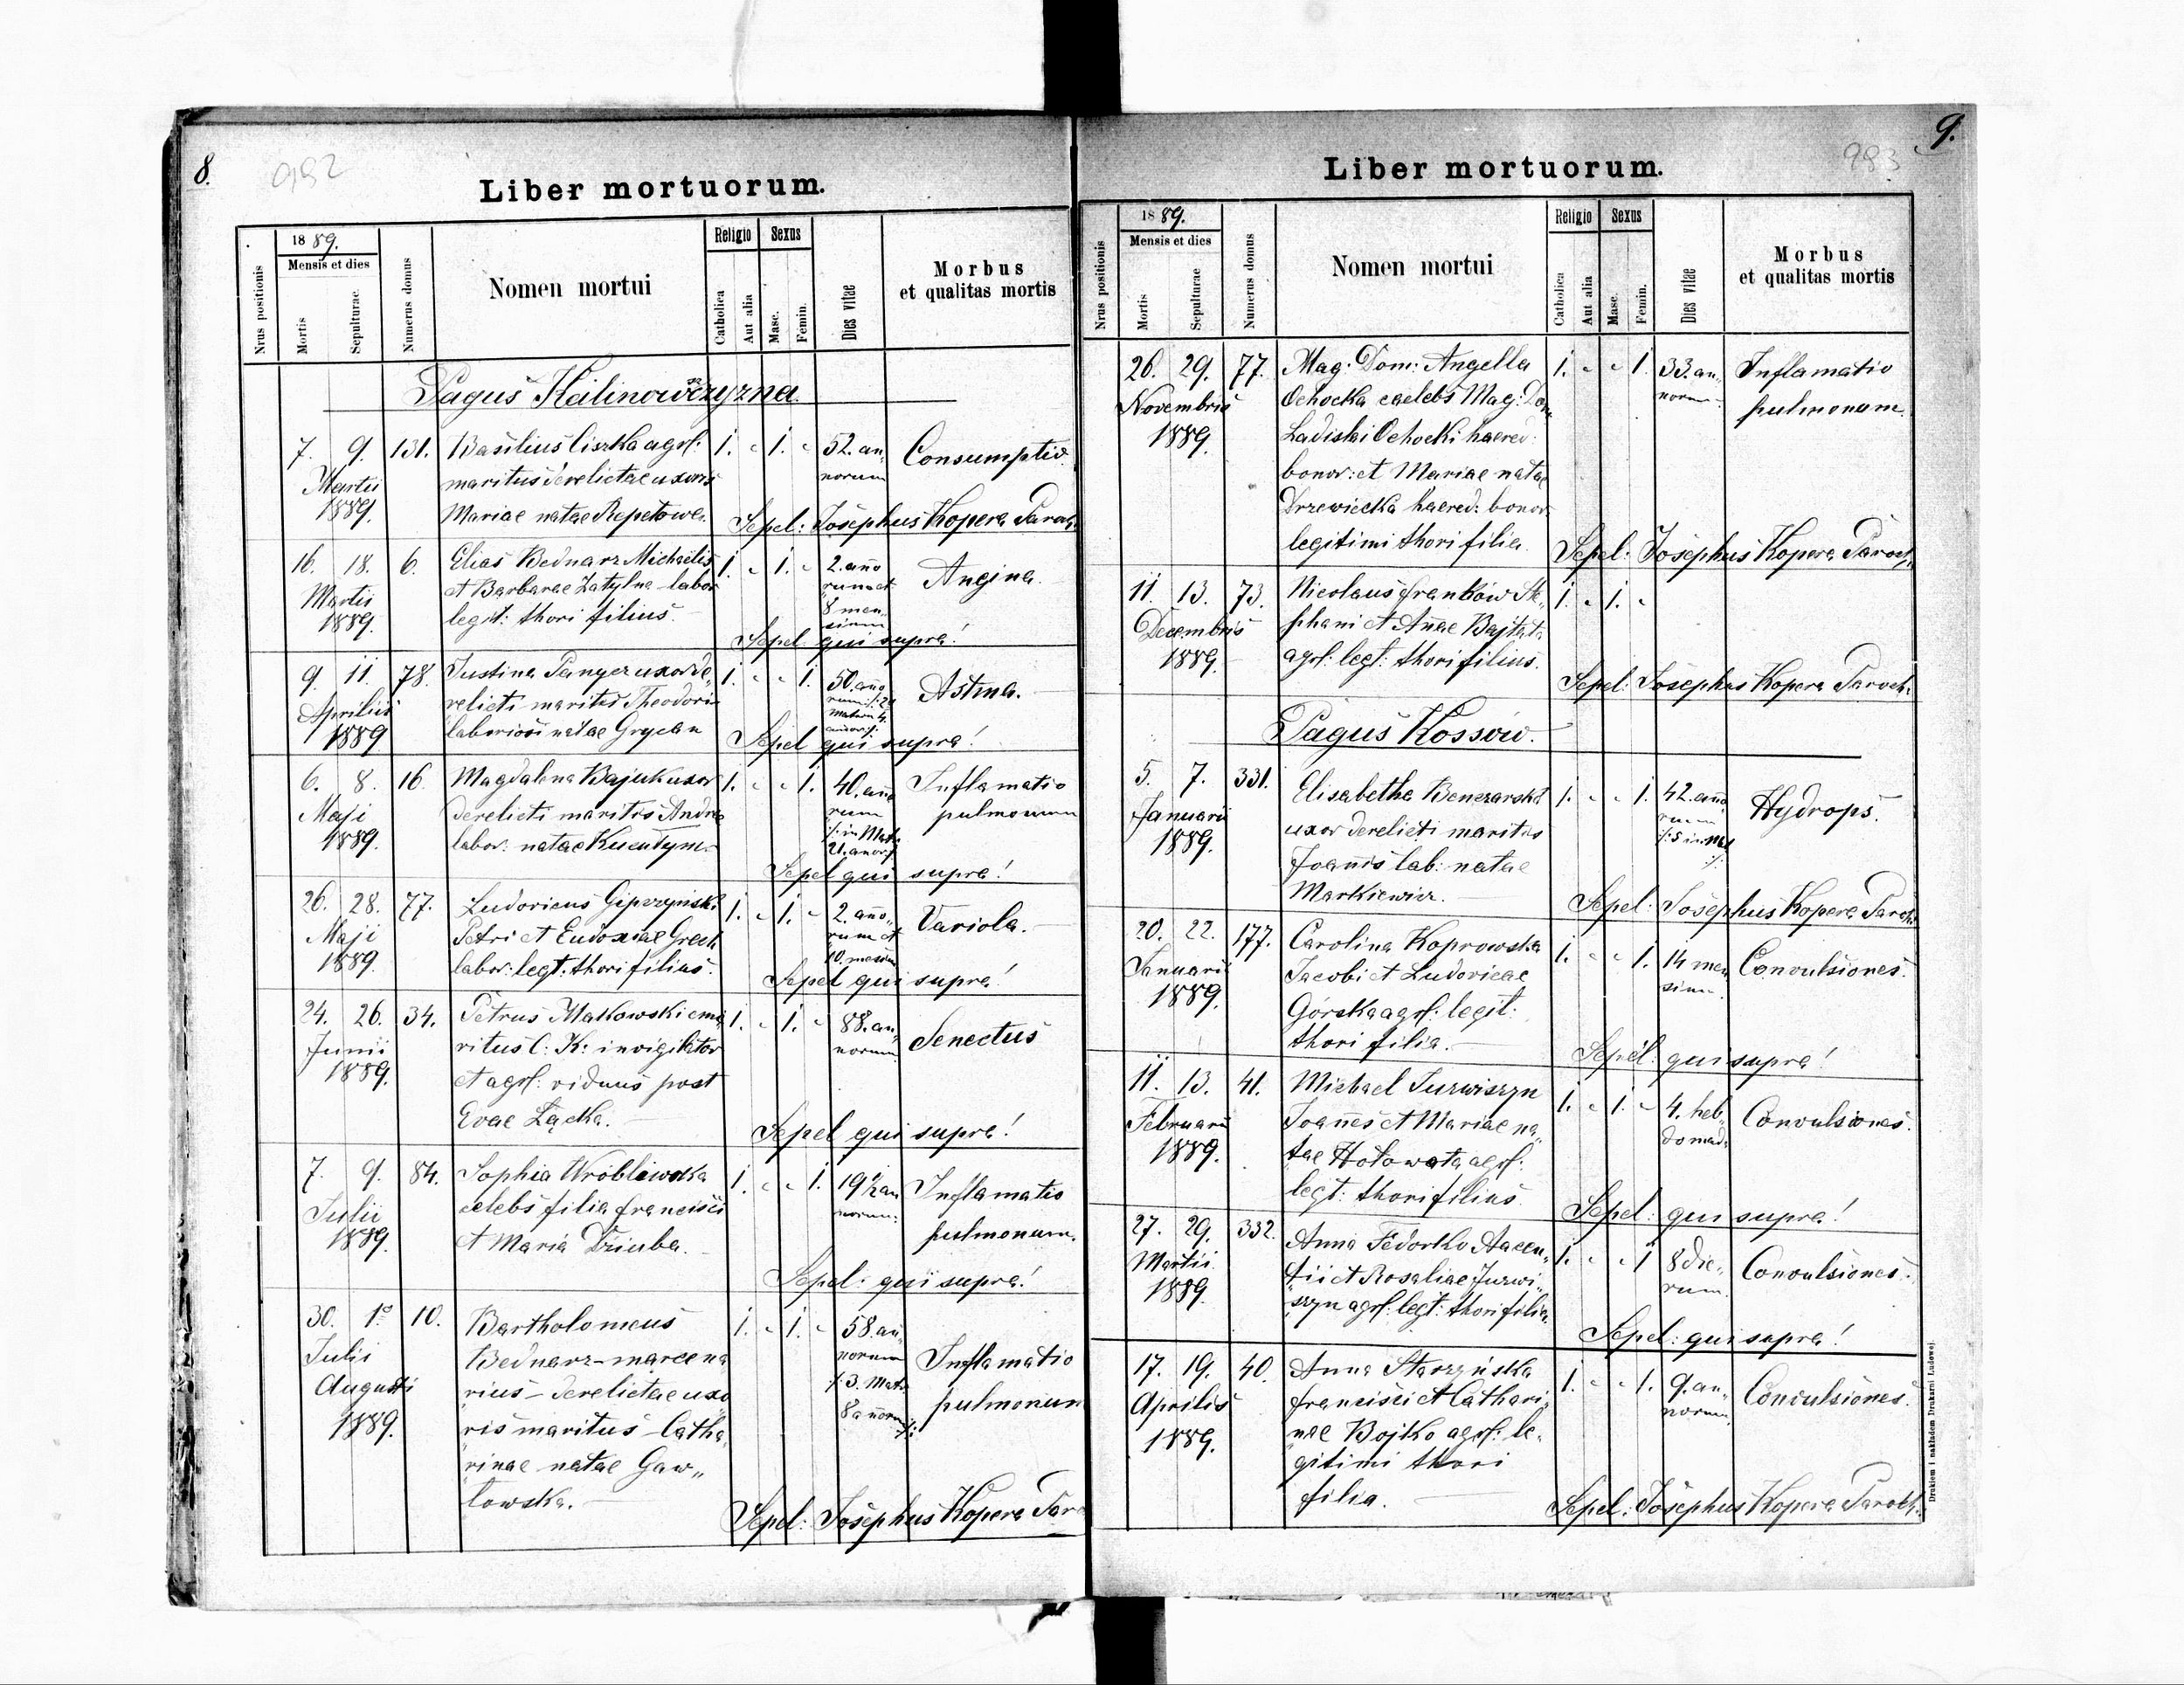 8.
982
Liber mortuorum.
Nrus positionis
1889.
Mensis et dies
Mortis
Sepulturae
Numerus domus
Nomen mortui
Religio
Catholica
Aut alia
Sexus
Masc.
Femin.
Dies vitae
Morbus
et qualitas mortis
Pagus Kalinowszczyzna
7. 9. 131. Basilius Ciszka agrl: 1. " 1. " 52. an„ Consumptio.
Martii maritus derelictae uxoris norum
1889. Mariae natae Repetowa. Sepel: Josephus Kopera Paroch.
16. 18. 6. Elias Bednarz Michaelis 1. " 1. " 2. año Angina.
Martii et Barbarae Zatylna labor rum et
1889. legit: thori filius. 8 men„
sium
Sepel qui supra!
9. 11. 78. Justina Panger uxor de„ 1. " " 1. 50. año Astma.
Aprilis relicti mariti Theodori
1889 laboriosi natae Grycan
Sepel qui supra!
6. 8. 16. Magdalena Bajuk uxor 1. " " 1. 40. año Inflamatio
Maji derelicti maritis Andrea rum pulmonum
1889. labor: natae Kuentym
Sepel qui supra!
26. 28. 77. Ludovicus Gipczynski 1. " 1. " 2. año„ Variola.
Maji Petri et Eudoxiae Grech rum et
1889. labor: legt: thori filius. 10. mesium
Sepel qui supra!
24. 26. 34. Petrus Makowski eme 1. " 1. " 88. an„ Senectus
Junii ritus C: K: invigilator norum
1889. et agrl: viduus post
Evae Łącka.
Sepel qui supra!
7. 9. 84. Sophia Wróblewska 1. " " 1. 19½ an Inflamatio
Julii celebs filia francisci norum: pulmonum.
1889. et Maria Dziuba.
Sepel: qui supra!
30. 1º 10. Bartholomeus 1. " 1. " 58. an„ Inflamatio
Julii Bednarz - marcena norum pulmonum
Augusti rius - derelictae uxo /:3. Mat.
1889. ris maritus - Catha 8 añorum:/
rinae natae Gaw„
łowska.
Sepel: Josephus Kopera Par
9.
983
Liber mortuorum.
Nrus positionis
1889.
Mensis et dies
Mortis
Sepulturae
Numerus domus
Nomen mortui
Religio
Catholica
Aut alia
Sexus
Masc.
Femin.
Dies vitae
Morbus
et qualitas mortis
26. 29. 77. Mag: Dom: Angella 1. " " 1. 33. an„ Inflamatio
Novembris Ochocka caelebs Mag: Dom norum. pulmonum.
1889. Ladislai Ochocki haered:
bonor: et Mariae natae
Drzewiecka haered: bonor:
legitimi thori filia.
Sepel: Josephus Kopera Paroch.
11. 13. 73. Nicolaus franków Ste„ 1. " 1. "
Decembris phani et Añae Bajtała
1889. agrl: legt: thori filius.
Sepel: Josephus Kopera Paroch.
Pagus Kossów.
5. 7. 331. Elisabetha Benczarska 1. " " 1. 42. año Hydrops.
Januarii uxor derelicti maritus rum
1889. Joannis lab: natae
Markiewicz.
Sepel: Josephus Kopera Paroch.
20. 22. 177. Carolina Koprowska 1. " " 1. 14 men Convulsiones.
Januarii Jacobi et Ludovicae sium.
1889. Górska agrl: legit:
thori filia.
Sepel: qui supra!
11. 13. 41. Michael Jurwiszyn 1. " 1. " 4. heb„ Convulsiones.
Februarii Joannes et Mariae na„ domad:
1889. tae Hołowata agrl:
legt: thori filius
Sepel: qui supra!
27. 29. 332. Anna Fedorko Aacen„ 1. " " 1 8 die„ Convulsiones.
Martii tii et Rosaliae Jurwi„ rum.
1889. szyn agrl: legt: thori filia.
Sepel: qui supra!
17. 19. 40. Anna Starzyńska 1. " " 1. 9. an„ Convulsiones.
Aprilis francisci et Cathari„ norum.
1889. nae Bojko agrl: le„
gitimi thori
filia.
Sepel: Josephus Kopera Paroch.
Drukiem i nakładem Drukarni Ludowej.